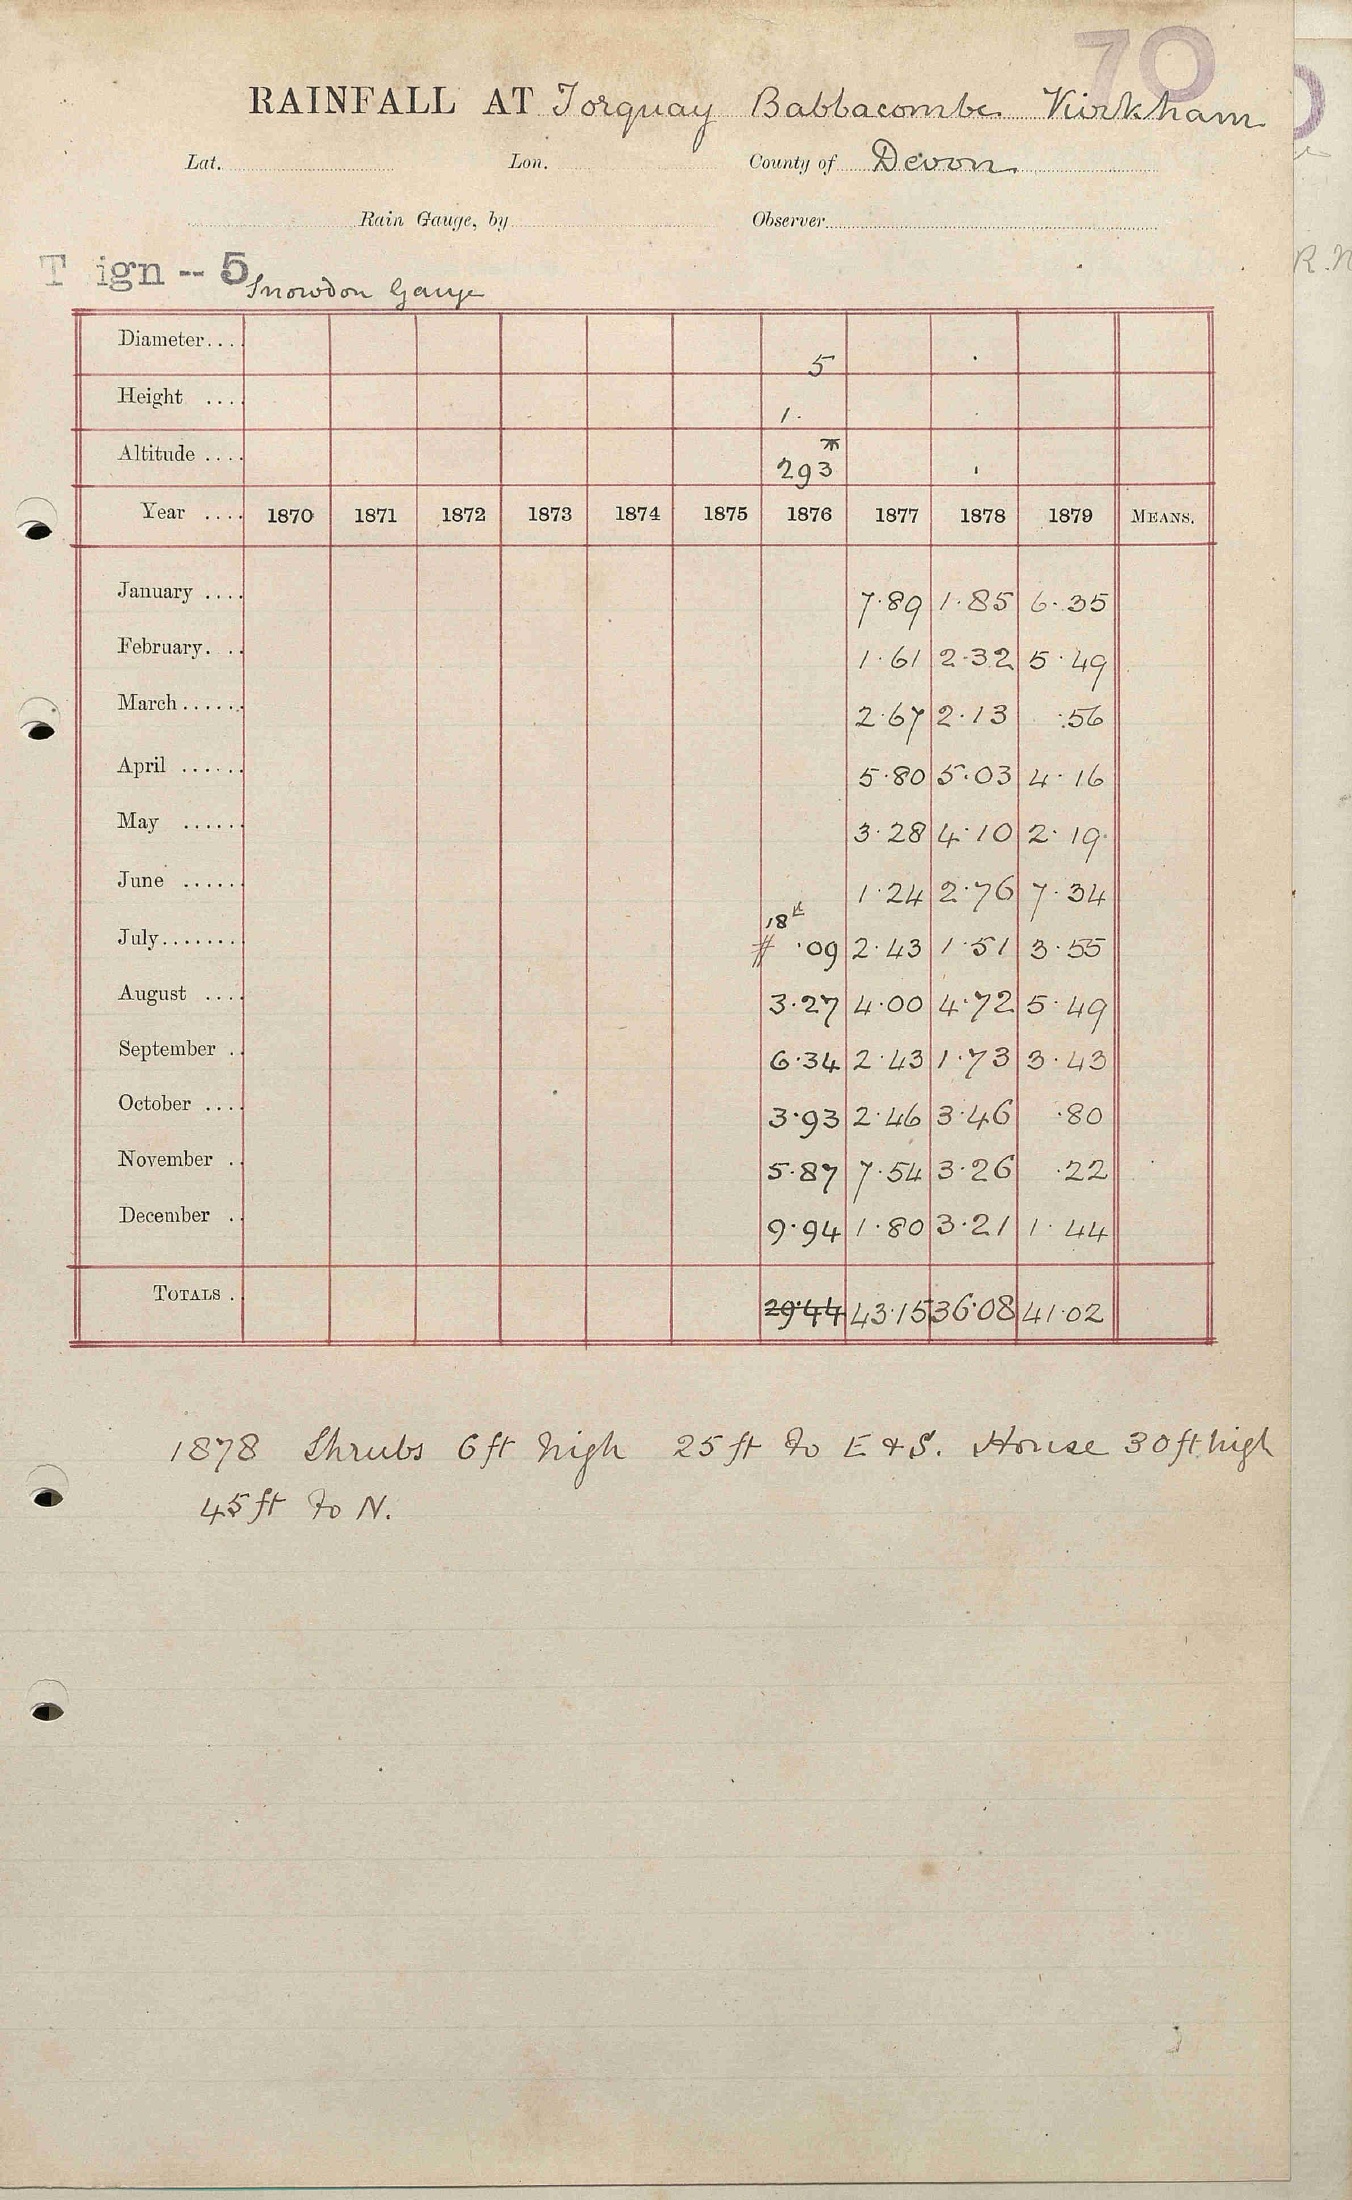 70
RAINFALL AT Torquay Babbacombe Kirkham
Lat. Lon. County of Devon
Rain Gauge, by Observer
T ign -- 5 Snowdon Gauge
Diameter.... 5
Height .... 1.
Altitude .... 293
Year .... 1870 1871 1872 1873 1874 1875 1876 1877 1878 1879 MEANS.
January .... 7.89 1.85 6.35
February. .. 1.61 2.32 5.49
March...... 2.67 2.13 .56
April ...... 5.80 5.03 4.16
May ...... 3.28 4.10 2.19
June ...... 1.24 2.76 7.34
18th
July........ # .09 2.43 1.51 3.55
August .... 3.27 4.00 4.72 5.49
September .. 6.34 2.43 1.73 3.43
October .... 3.93 2.46 3.46 .80
November .. 5.87 7.54 3.26 .22
December .. 9.94 1.80 3.21 1.44
TOTALS . 29.44 43.15 36.08 41.02
1878 Shrubs 6ft high 25ft to E & S. House 30ft high
45ft to N.
R.